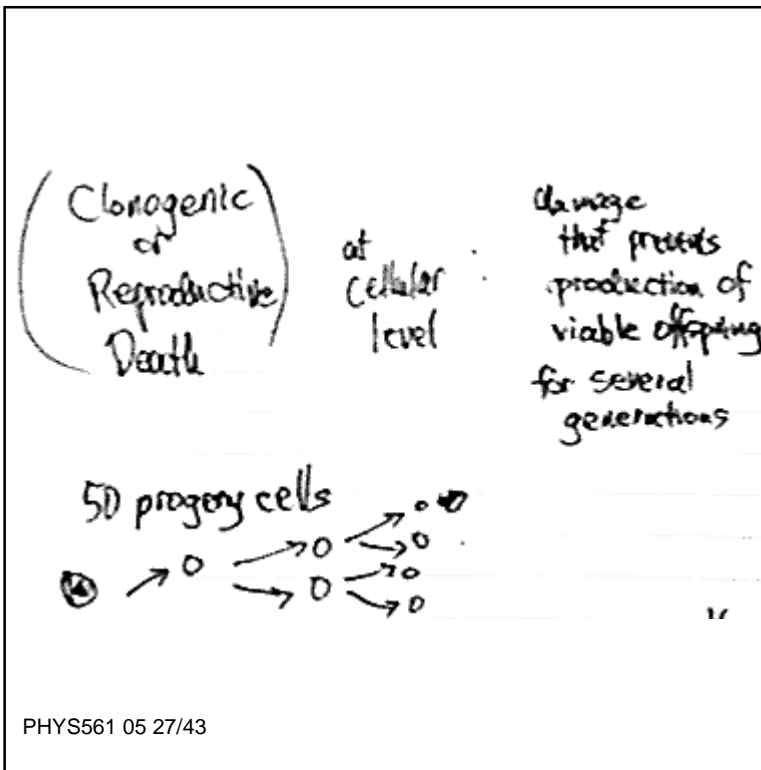 Clonogenic
or
Reproductive
Death
at
cellular
level
damage
that prevents
production of
viable offspring
for several
generations
50 progeny cells
PHYS561 05 27/43